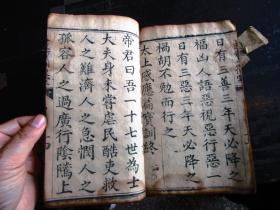 日有三善三年天必降之
福凶人語惡視惡行惡一
日有三惡三年天必降之
禍胡不勉而行之
太上感應篇寶訓終
帝君曰吾一十七世為士
大夫身未嘗虐民酷吏救
人之難濟人之急憫人之
孤容人之過廣行陰騭上